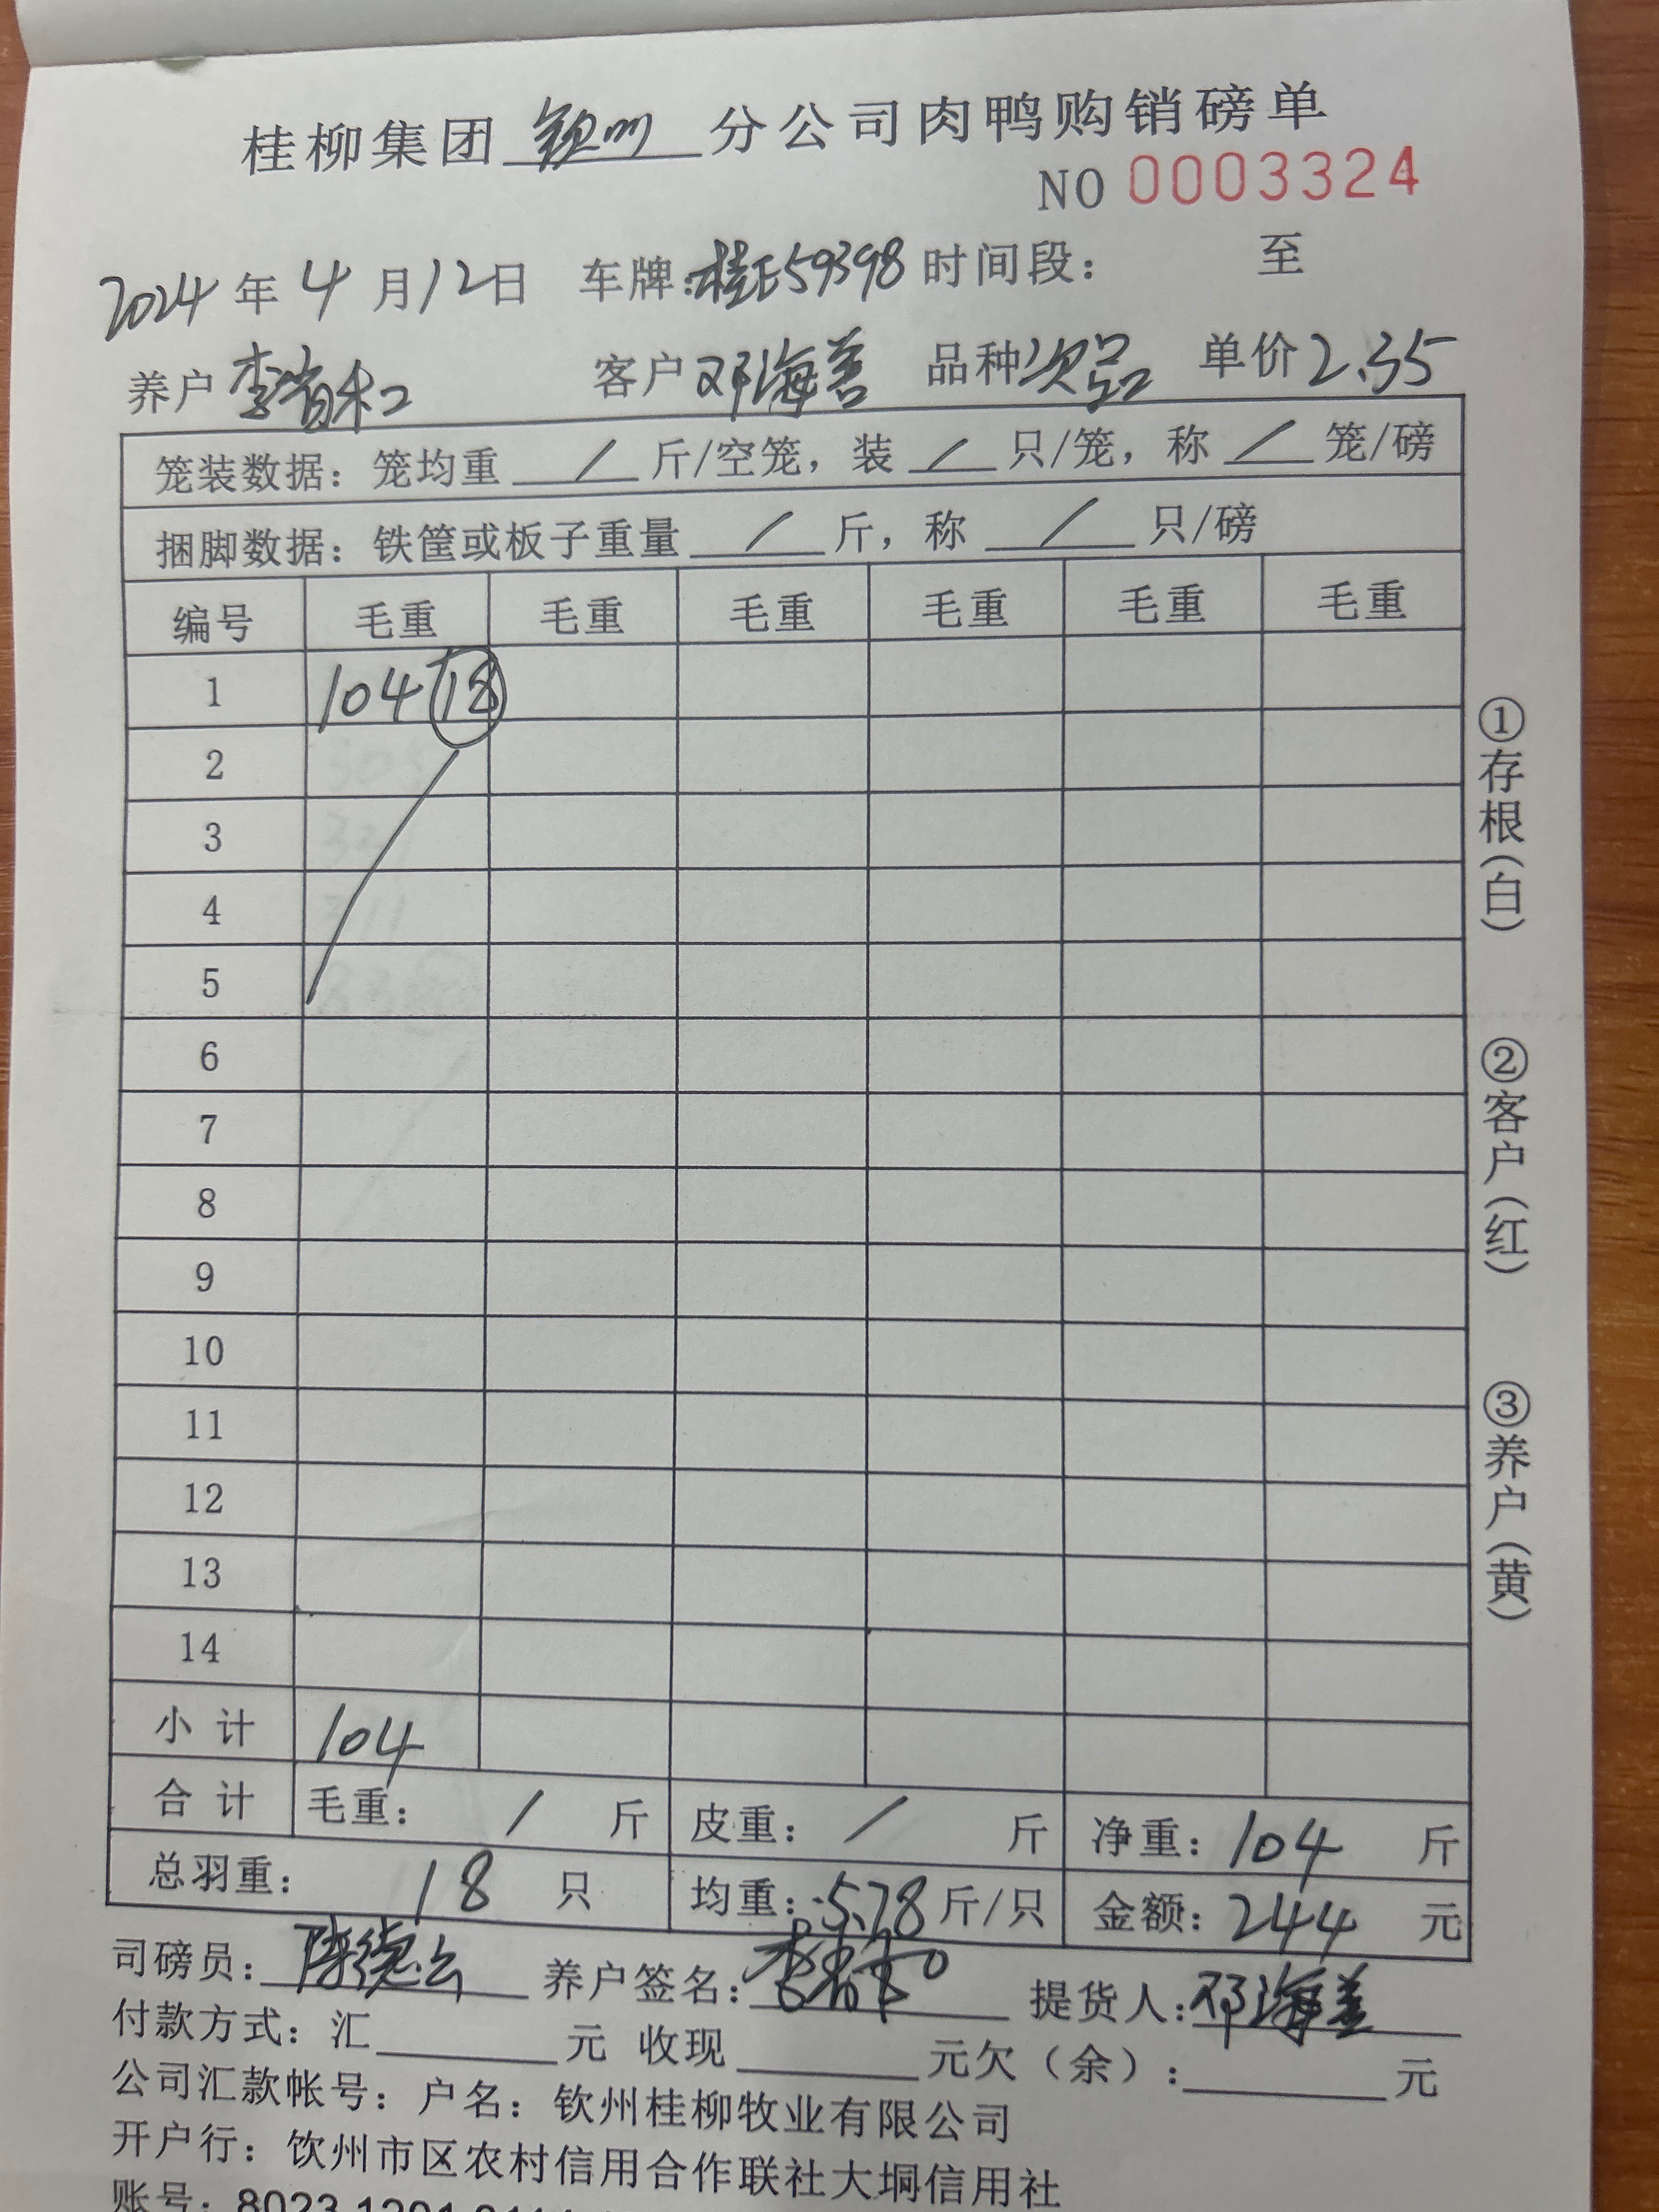 桂柳集团 钦州 分公司肉鸭购销磅单
NO 0003324
2024 年 4 月 12 日 车牌:桂E59398 时间段: 至
养户 李肖和 客户 邓海善 品种 次品 单价 2.35
笼装数据: 笼均重 / 斤/空笼, 装 / 只/笼, 称 / 笼/磅
捆脚数据: 铁筐或板子重量 / 斤, 称 / 只/磅
编号 毛重 毛重 毛重 毛重 毛重 毛重
1 104 18
2
3
4
5
6
7
8
9
10
11
12
13
14
小计 104
合计 毛重: / 斤 皮重: / 斤 净重: 104 斤
总羽重: 18 只 均重: 5.78 斤/只 金额: 244 元
司磅员: 陈德云 养户签名: 李肖和 提货人: 邓海善
付款方式: 汇 元 收现 元欠(余): 元
公司汇款帐号: 户名: 钦州桂柳牧业有限公司
开户行: 钦州市区农村信用合作联社大垌信用社
账号: 8023 1201
①存根(白)
②客户(红)
③养户(黄)